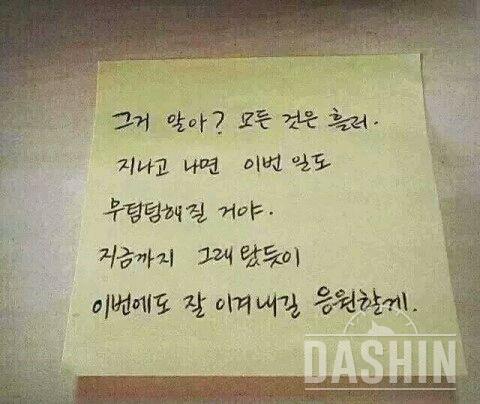 그거 알아? 모든 것은 흘러.
지나고 나면 이번 일도
무덤덤해질 거야.
지금까지 그래 왔듯이
이번에도 잘 이겨내길 응원할게.
DASHIN